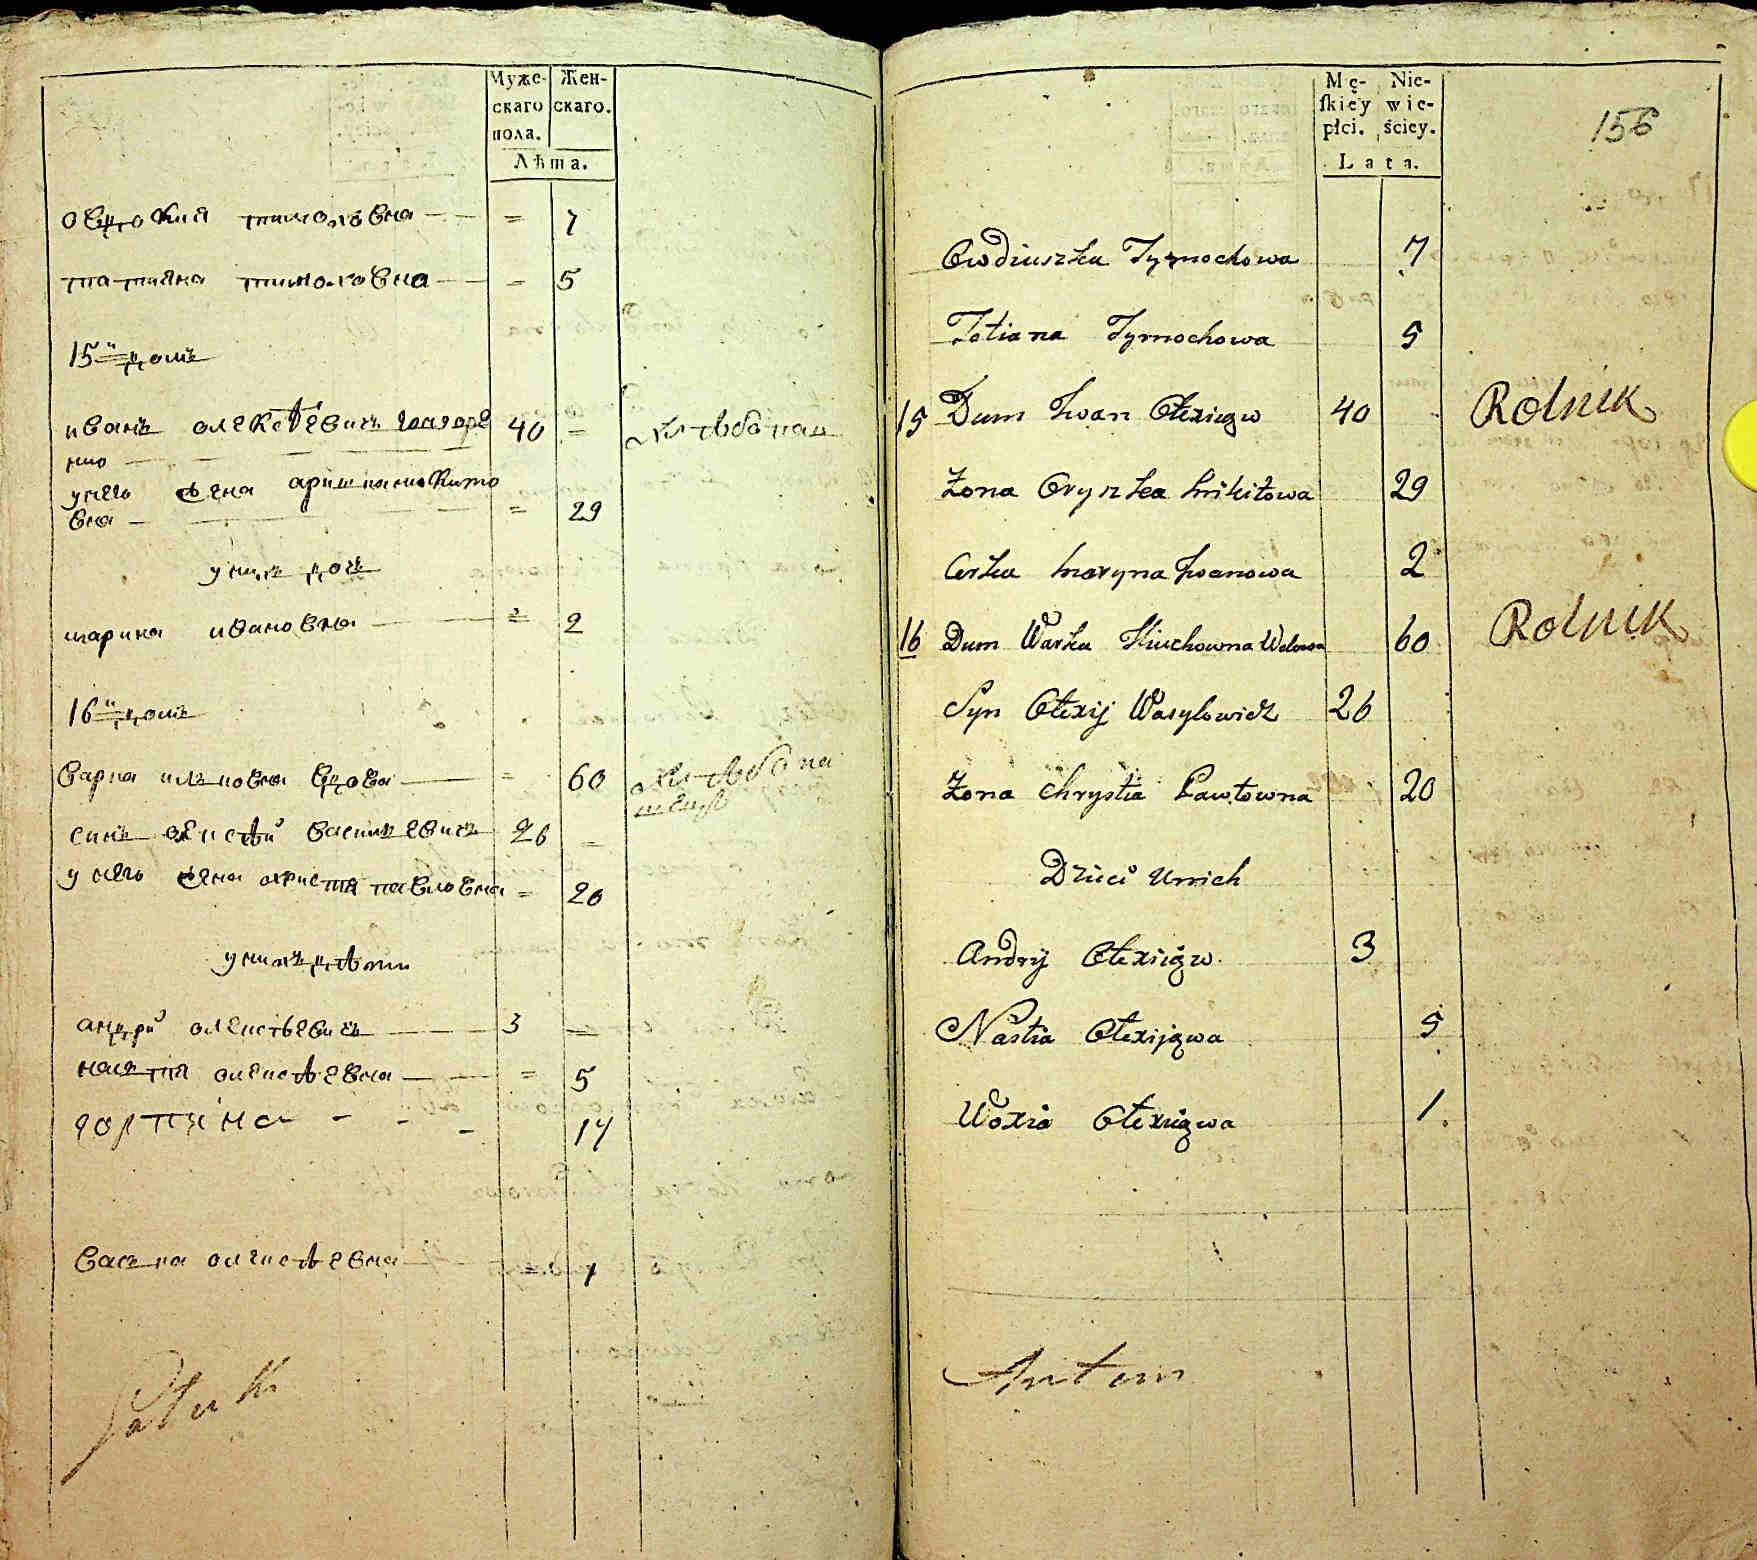 Муже-
скаго
пола.
Жен-
скаго.
Лѣта.
овдокия тимоховна = 7
татияна тимоховна = 5
15й домъ
иванъ олексѣевичъ 40 =
унего жена аришка микито
вна = 29
унихъ дочь
марина ивановна = 2
16й домъ
варка вдова = 60
синъ олексѣй василевичъ 26 =
унего жена христя павловна = 20
унихъ дѣти
андрй олексѣевичъ 3 =
настя олексѣевна = 5
горпина 14
олексѣевна = 1
Mę-
skiey
płci.
Nie-
wie-
ściey.
Lata.
156
Owdiuszka Tymochowa 7
Tatiana Tymochowa 5
15 Dum Iwan Ołexiegw 40 Rolnik
Żona Oryszka Mikitowa 29
Curka Maryna Iwanowa 2
16 Dum Warka Wdowa 60 Rolnik
Syn Ołexij Wasylowicz 26
Żona Chrystia Pawłowna 20
Dzieci Unich
Andrij Ołexiegw 3
Nastia Ołexijgwa 5
Woxia Ołexiigwa 1